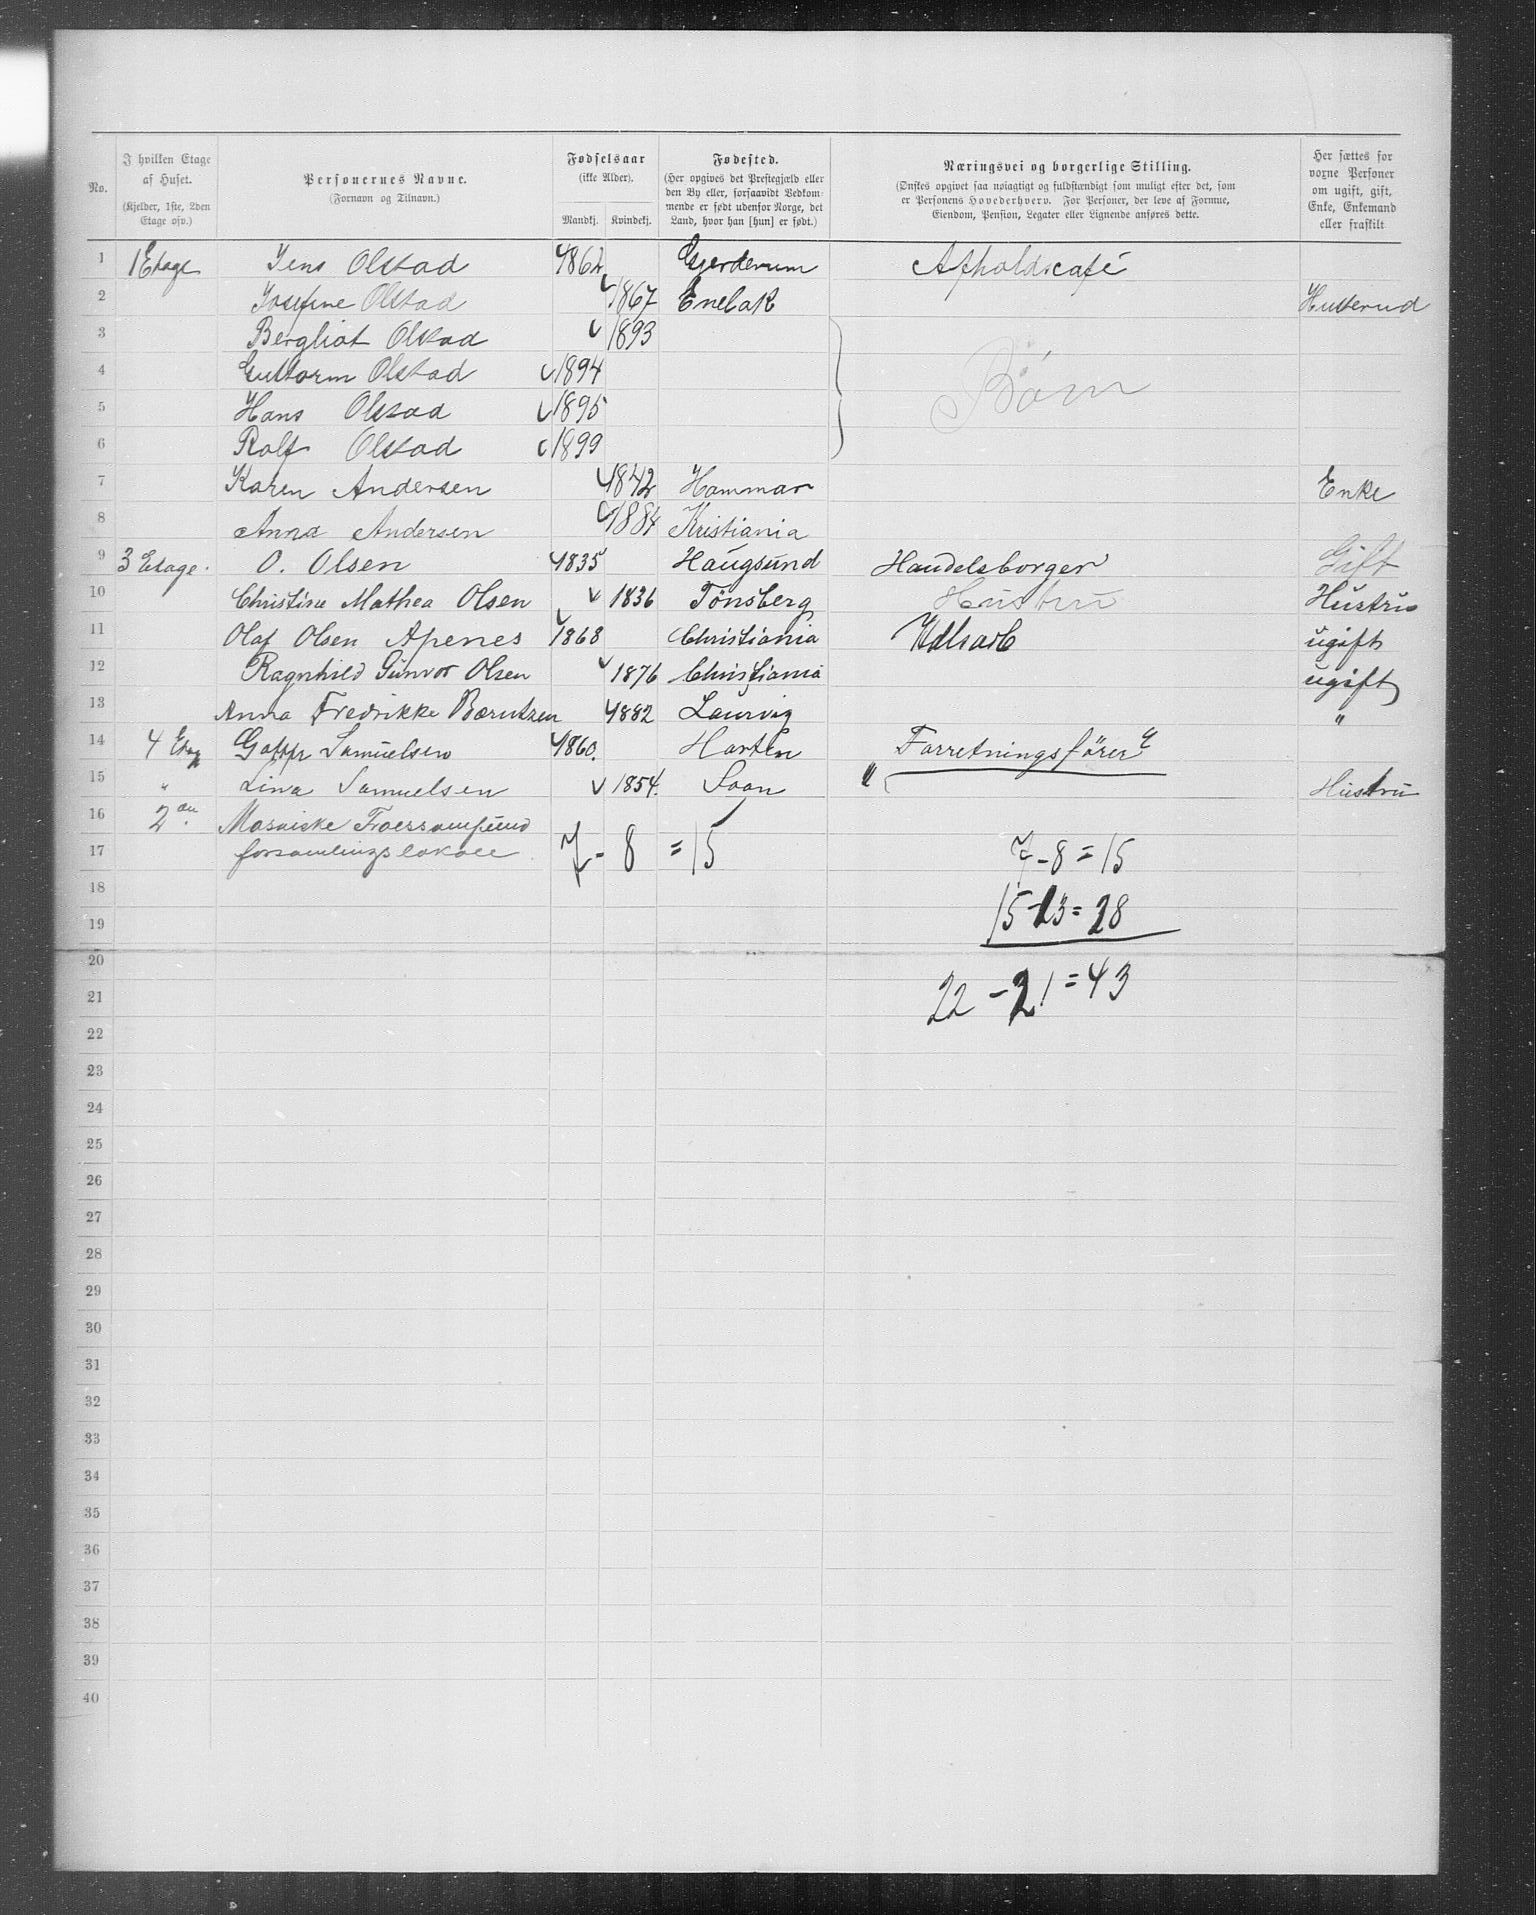 No.
I hvilken Etage af Huset. (Kjelder, 1ste, 2den Etage osv.)
Personernes Navne. (Fornavn og Tilnavn.)
Fødselsaar (ikke Alder). Mandkj. Kvindekj.
Fødested. (Her opgives det Prestegjæld eller den By eller, forsaavidt Vedkommende er født udenfor Norge, det Land, hvor han [hun] er født.)
Næringsvei og borgerlige Stilling. (Ønskes opgivet saa nøiagtigt og fuldstændigt som muligt efter det, som er Personens Hovederhverv. For Personer, der leve af Formue, Eiendom, Pension, Legater eller Lignende anføres dette.
Her sættes for voxne Personer om ugift, gift, Enke, Enkemand eller fraskilt
1 1 Etage Jens Olstad 1862 Gjerderum Afholdscafé
2 Josefine Olstad 1867 Enebak Husterud
3 Bergliot Olstad 1893
4 Guttorm Olstad 1894 Börn
5 Hans Olstad 1895
6 Rolf Olstad 1899
7 Karen Andersen 1842 Hammar Enke
8 Anna Andersen 1884 Kristiania
9 3 Etage. O. Olsen 1835 Haugsund Handelsborger Gift
10 Christine Mathea Olsen 1836 Tönsberg Hustru Hustru
11 Olaf Olsen Apenes 1868 Christiania ugift
12 Ragnhild Gunvor Olsen 1876 Christiania ugift
13 Anna Fredrikke Berntzen 1882 Laurvig "
14 4 Etag Samuelsen 1860. Horten Forretningsförer
15 " Lina Samuelsen 1854. Soon " Hustru
16 2 Mosaiske Troessamfund
17 forsamlingslokale 7 - 8 = 15 7 - 8 = 15
18
19 15 - 13 = 28
20
21 22 - 21 = 43
22
23
24
25
26
27
28
29
30
31
32
33
34
35
36
37
38
39
40